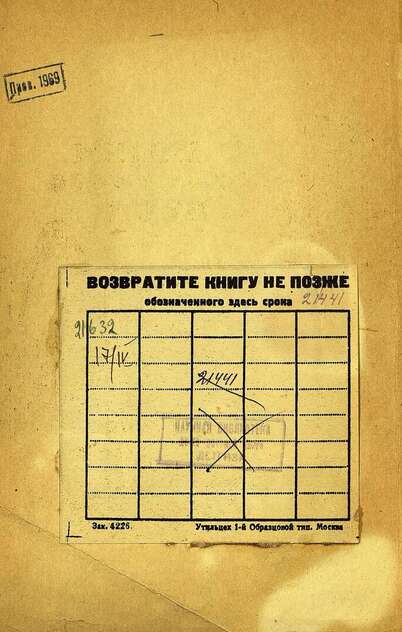 Пров. 1969
ВОЗВРАТИТЕ КНИГУ НЕ ПОЗЖЕ
обозначенного здесь срока 21441
21632
17/IV
21441
Зак. 4226. Утильцех 1-й Образцовой тип. Москва